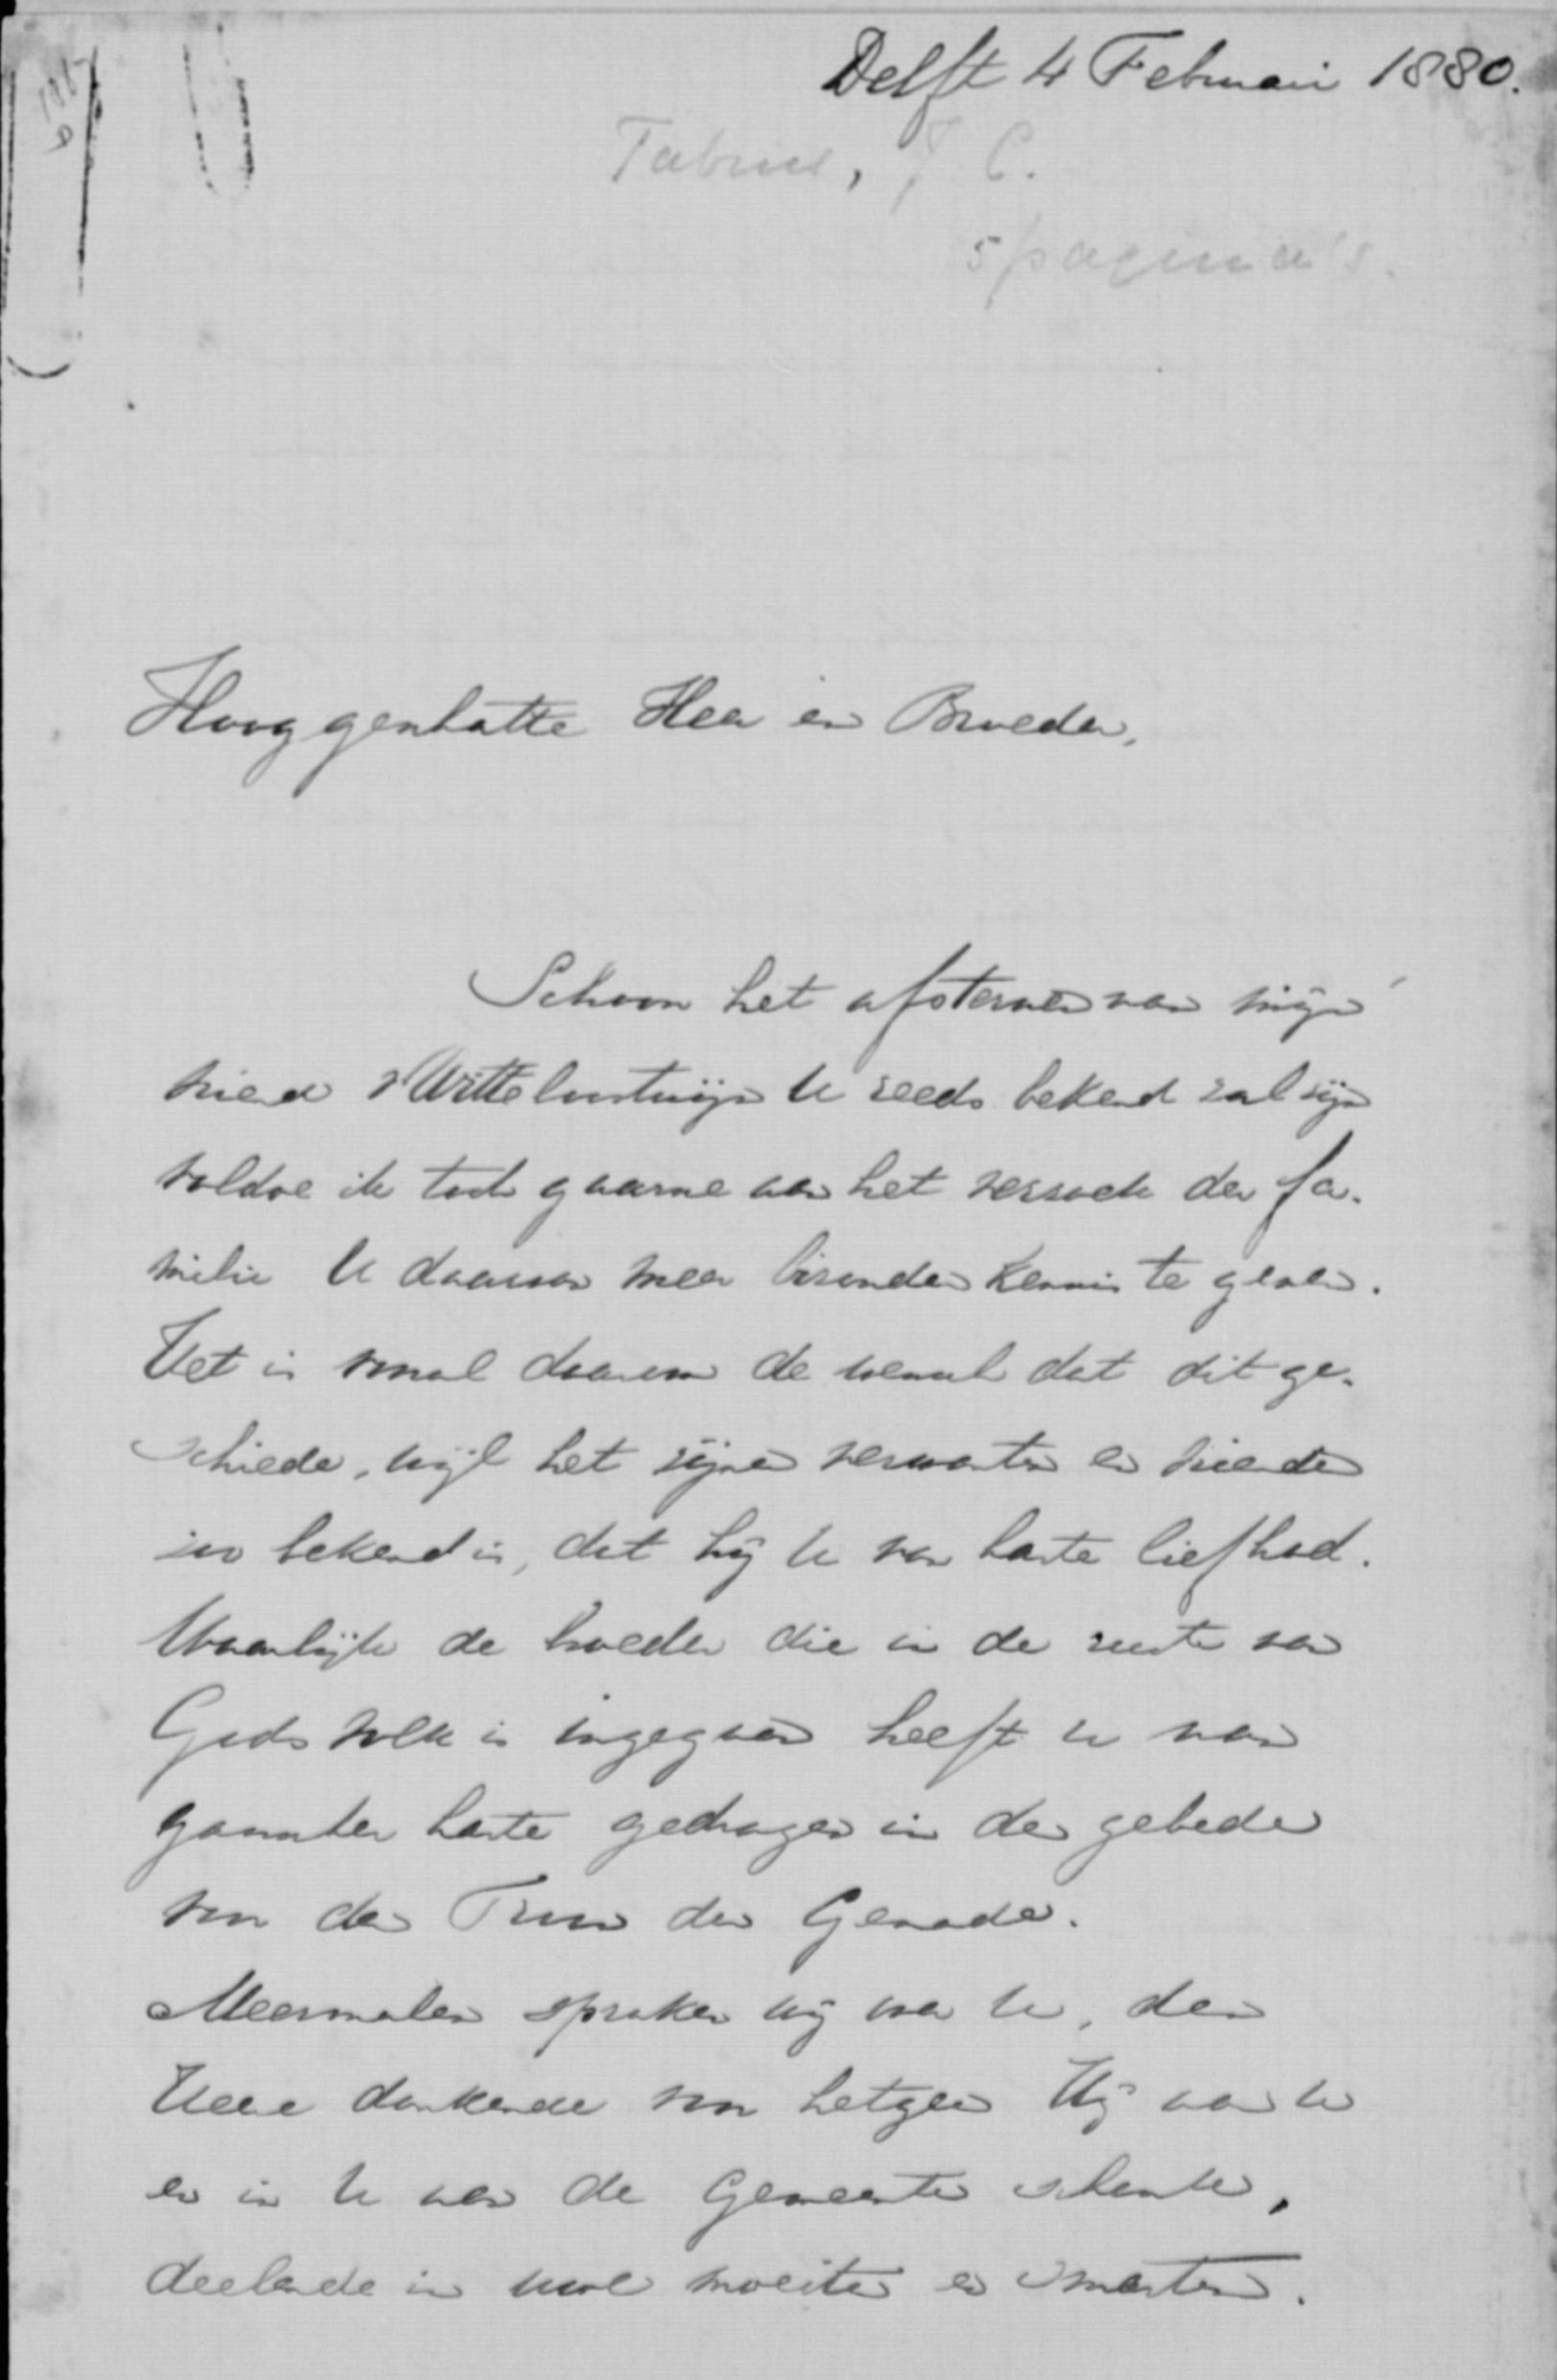 Delft 4 Februari 1880.
Fabius, J C.
5 pagina's.
Hooggeachtte Heer en Broeder,
Schoon het afsterven van mijn
vriend Wittebusteijn U reeds bekend zal zijn
voldoe ik toch gaarne aan het verzoek der fa-
milie U daarvan meer bizonder kennis te geven.
Het is vooral daarom de wensch dat dit ge-
schiede, wijl het zijnen verwanten en vrienden
zoo bekend is, dat hij U van harte liefhad.
Waarlijk de broeder die in de ruste van
Gods volk is ingegaan heeft U van
gansscher harte gedragen in den gebede
voor den Troon der Genade.
Meermalen spraken wij over U, den
Heere dankende voor hetgeen Hij aan U
en in U aan de Gemeente schonk,
deelende in uwe moeiten en smarten.